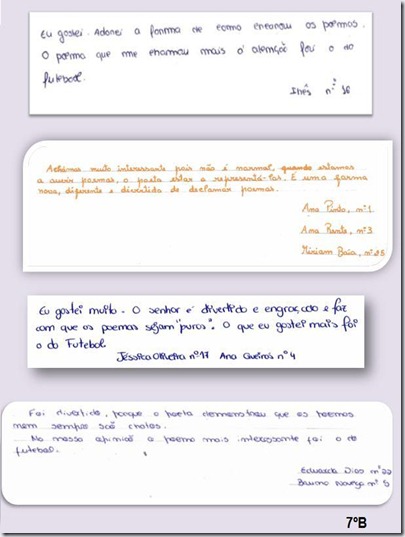 Eu gostei. Adorei a forma de como encarou os poemas.
O poema que me chamou mais a atenção foi o do
futebol.
Inês nº 16
Achámos muito interessante pois não é normal, quando estamos
a ouvir poemas, o poeta estar a representá-los. É uma forma
nova, diferente e divertida de declamar poemas.
Ana Pinto, nº1
Ana Rente, nº3
Miriam Baía, nº25
Eu gostei muito. O senhor é divertido e engraçado e faz
com que os poemas sejam "puros". O que eu gostei mais foi
o do Futebol.
Jéssica Oliveira nº17 Ana Queirós nº4
Foi divertido, porque o poeta demonstrou que os poemas
nem sempre são chatos.
Na nossa opinião o poema mais interessante foi o do
futebol.
Eduarda Dias nº
Bruno nº
7ºB